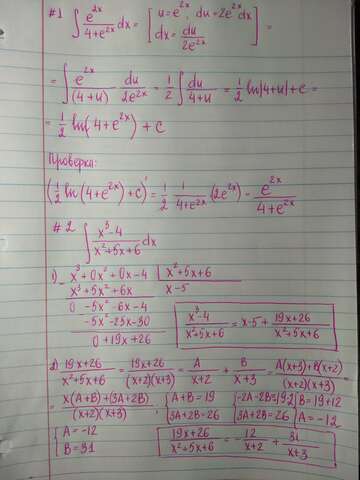 #1 ∫ e^{2x}/(4+e^{2x}) dx = [ u=e^{2x}, du=2e^{2x}dx; dx = du/(2e^{2x}) ] =
= ∫ e^{2x}/(4+u) du/(2e^{2x}) = 1/2 ∫ du/(4+u) = 1/2 ln|4+u| + c =
= 1/2 ln(4+e^{2x}) + C
Проверка:
(1/2 ln(4+e^{2x})+C)' = 1/2 1/(4+e^{2x}) (2e^{2x}) - e^{2x}/(4+e^{2x})
#2 ∫ (x^3-4)/(x^2+5x+6) dx
1) x^3+0x^2+0x-4 | x^2+5x+6
x^3+5x^2+6x | x-5
0 -5x^2-6x-4
-5x^2-25x-30
0+19x+26
(x^3-4)/(x^2+5x+6) = x-5 + (19x+26)/(x^2+5x+6)
2) (19x+26)/(x^2+5x+6) = (19x+26)/((x+2)(x+3)) = A/(x+2) + B/(x+3) = (A(x+3)+B(x+2))/((x+2)(x+3)) =
= (x(A+B)+(3A+2B))/((x+2)(x+3)), { A+B=19; 3A+2B=26 { -2A-2B=19·2; 3A+2B=26 { B=19+12; A=-12
{ A=-12; B=31
(19x+26)/(x^2+5x+6) = -12/(x+2) + 31/(x+3)